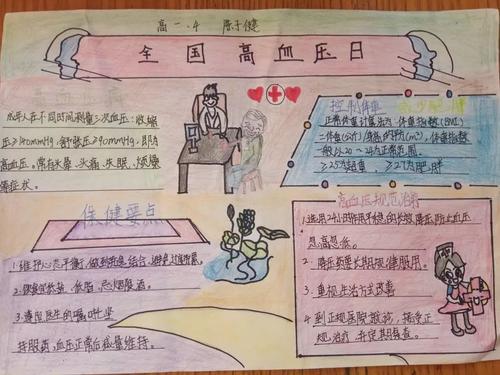 高一.4 陈子健
全国高血压日
高血压
成年人在不同时间测量3次血压:收缩
压≥140mmHg,舒张压≥90mmHg,即为
高血压。常有头晕、头痛、失眠、烦燥
等症状。
控制体重 减少肥胖
正常体重计算法为:体重指数(BMI)
=体重(公斤)/身高的平方(m²),体重指数
一般以20~24为正常范围。
≥25为超重, ≥27为肥胖
保健要点
1.维护心态平衡,做到劳逸结合,避免过度劳累。
2.饮食宜清淡、低脂、忌烟限酒。
3.遵照医生的嘱咐坚
持服药,血压正常后减量维持。
高血压规范治疗
1.选用24小时作用平稳的长效降压药,防止血压
忽高忽低。
2.降压药要长期规律服用。
3.重视生活方式改善
4.到正规医院就诊,接受正
规治疗,并定期复查。